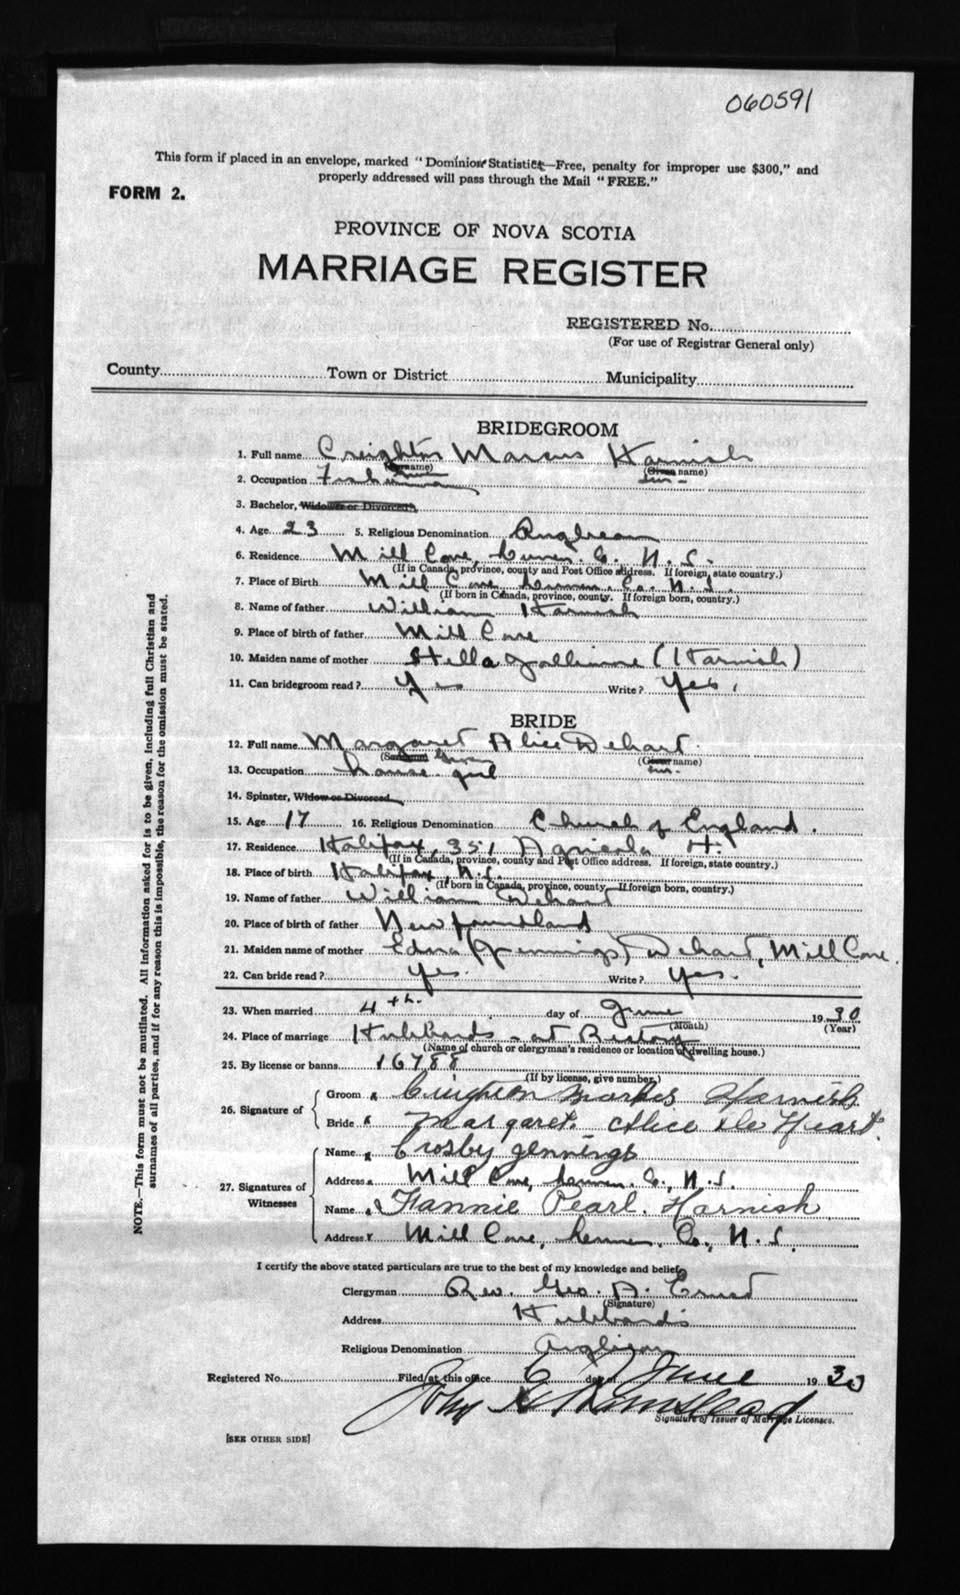 060591
This form if placed in an envelope, marked "Dominion Statistics—Free, penalty for improper use $300," and
properly addressed will pass through the Mail "FREE."
FORM 2.
PROVINCE OF NOVA SCOTIA
MARRIAGE REGISTER
REGISTERED No.
(For use of Registrar General only)
County Town or District Municipality
BRIDEGROOM
1. Full name Creighton Marcus Harnish
(Surname) (Given name)
2. Occupation Fisherman Sur-
3. Bachelor, Widower or Divorced
4. Age 23 5. Religious Denomination Anglican
6. Residence Mill Cove, Lunen. Co. N. S.
(If in Canada, province, county and Post Office address. If foreign, state country.)
7. Place of Birth Mill Cove Lunen. Co. N. S.
(If born in Canada, province, county. If foreign born, country.)
8. Name of father William Harnish
9. Place of birth of father Mill Cove
10. Maiden name of mother Stella Jollimore (Harnish)
11. Can bridegroom read? Yes Write? Yes.
BRIDE
12. Full name Margaret Alice Dehart.
(Surname) Given (Given name)
13. Occupation house girl Sur-
14. Spinster, Widow or Divorced
15. Age 17 16. Religious Denomination Church of England.
17. Residence Halifax, 351 Agricola St.
(If in Canada, province, county and Post Office address. If foreign, state country.)
18. Place of birth Halifax, N.S.
(If born in Canada, province, county. If foreign born, country.)
19. Name of father William Dehart
20. Place of birth of father Newfoundland
21. Maiden name of mother Edna (Jennings) Dehart, Mill Cove.
22. Can bride read? yes. Write? yes.
23. When married 4th. day of June 1930
(Month) (Year)
24. Place of marriage Hubbards - at Rectory
(Name of church or clergyman's residence or location of dwelling house.)
25. By license or banns 16788
(If by license, give number.)
26. Signature of Groom x Creighton Markes Harnish
Bride x Margaret. Alice De Heart.
27. Signatures of Witnesses Name x Crosby Jennings
Address Mill Cove, Lunen. Co., N. S.
Name Fannie Pearl. Harnish
Address Mill Cove, Lunen. Co., N. S.
I certify the above stated particulars are true to the best of my knowledge and belief.
Clergyman Rev. Geo. A. Ernst
(Signature)
Address Hubbards
Religious Denomination Anglican
Registered No. Filed at this office 6 day of June 1930
John
Signature of Issuer of Marriage Licenses.
[SEE OTHER SIDE]
NOTE.—This form must not be mutilated. All information asked for is to be given, including full Christian and
surnames of all parties, and if for any reason this is impossible, the reason for the omission must be stated.